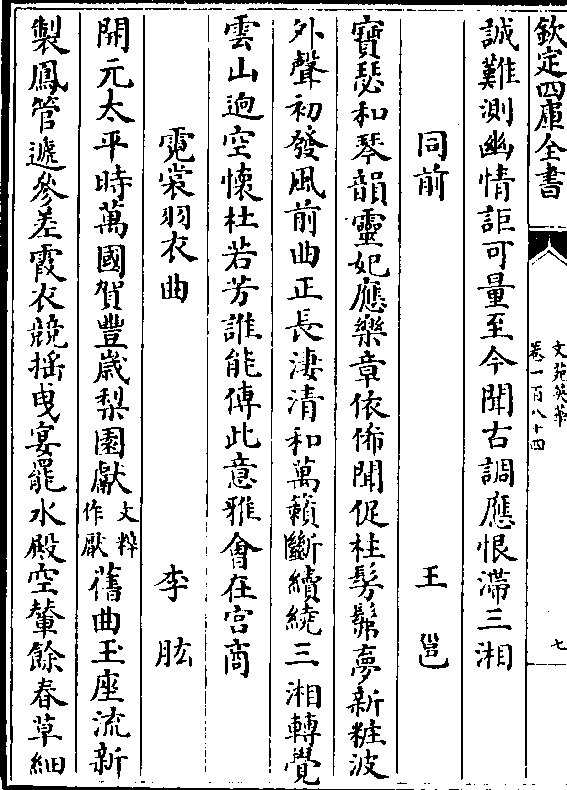 欽定四庫全書
文苑英華
卷一百八十四
七
誠難測幽情詎可量至今聞古調應恨滯三湘
同前 王邕
寶瑟和琴韻靈妃應樂章依俙聞促柱髣髴夢新粧波
外聲初發風前曲正長淒清和萬籟斷續繞三湘轉覺
雲山逈空懷杜若芳誰能傳此意雅會在宫商
霓裳羽衣曲 李肱
開元太平時萬國賀豐歲梨園獻文粹作厭舊曲玉座流新
製鳳管遞參差霞衣競揺曳宴罷水殿空輦餘春草細